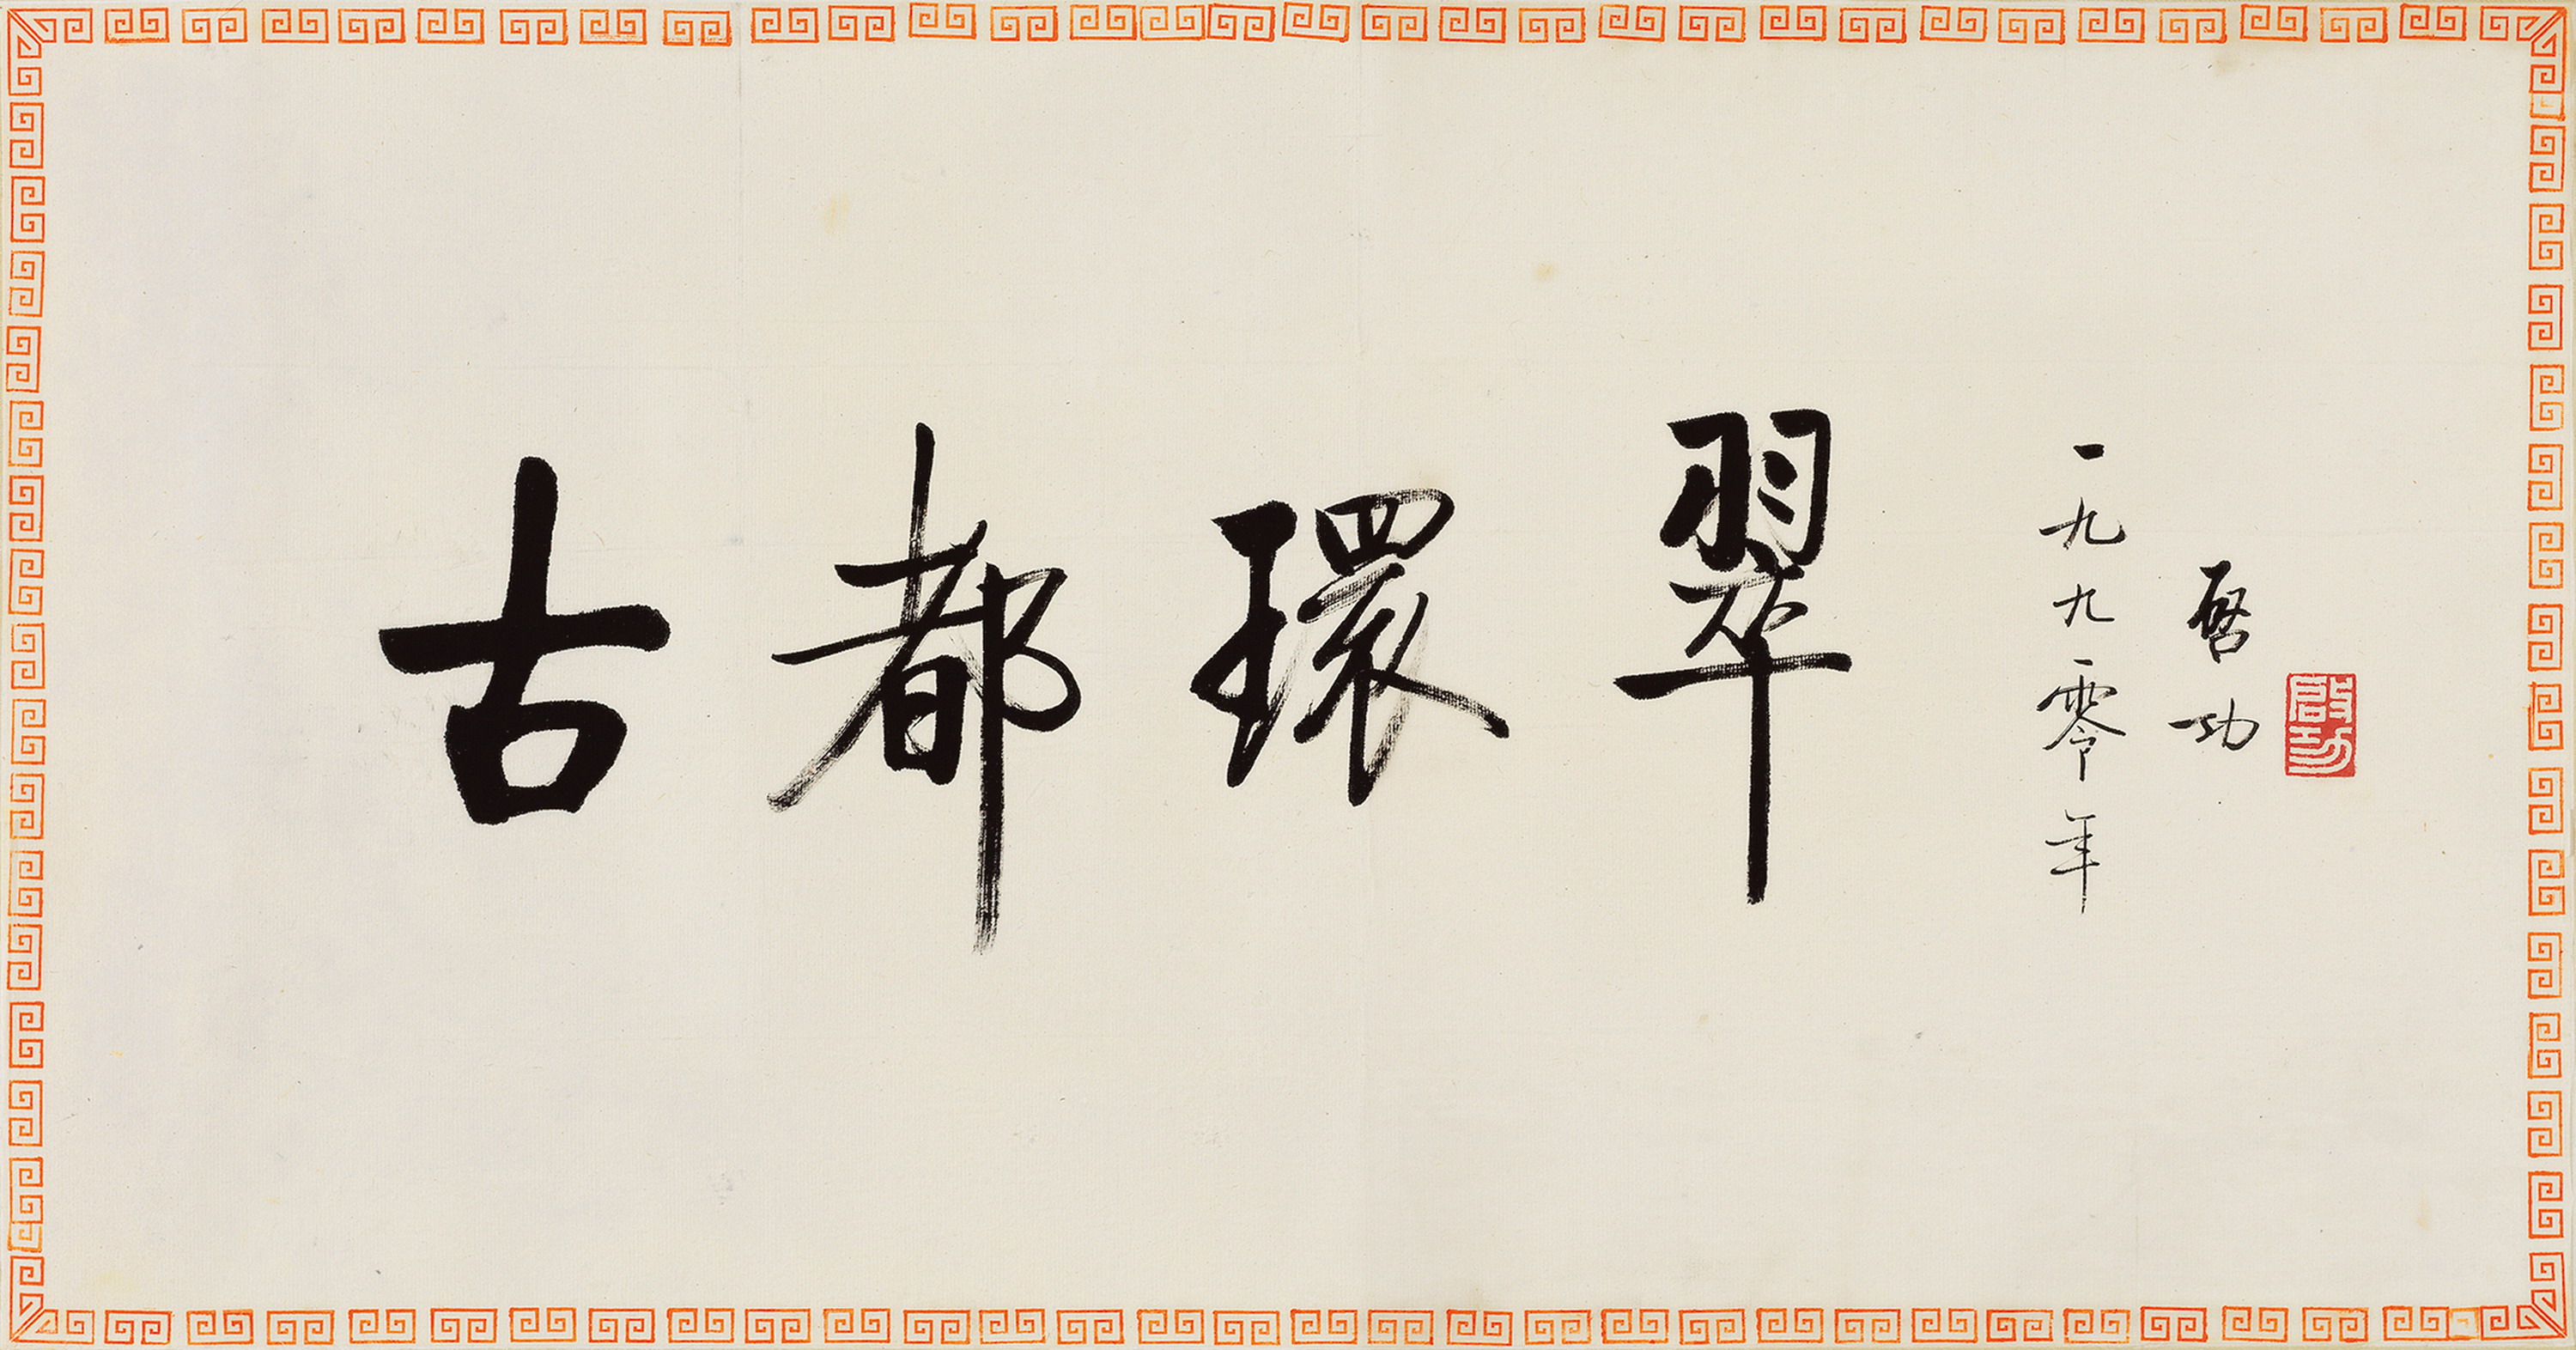 古都環翠
一九九零年
啓功
啟功